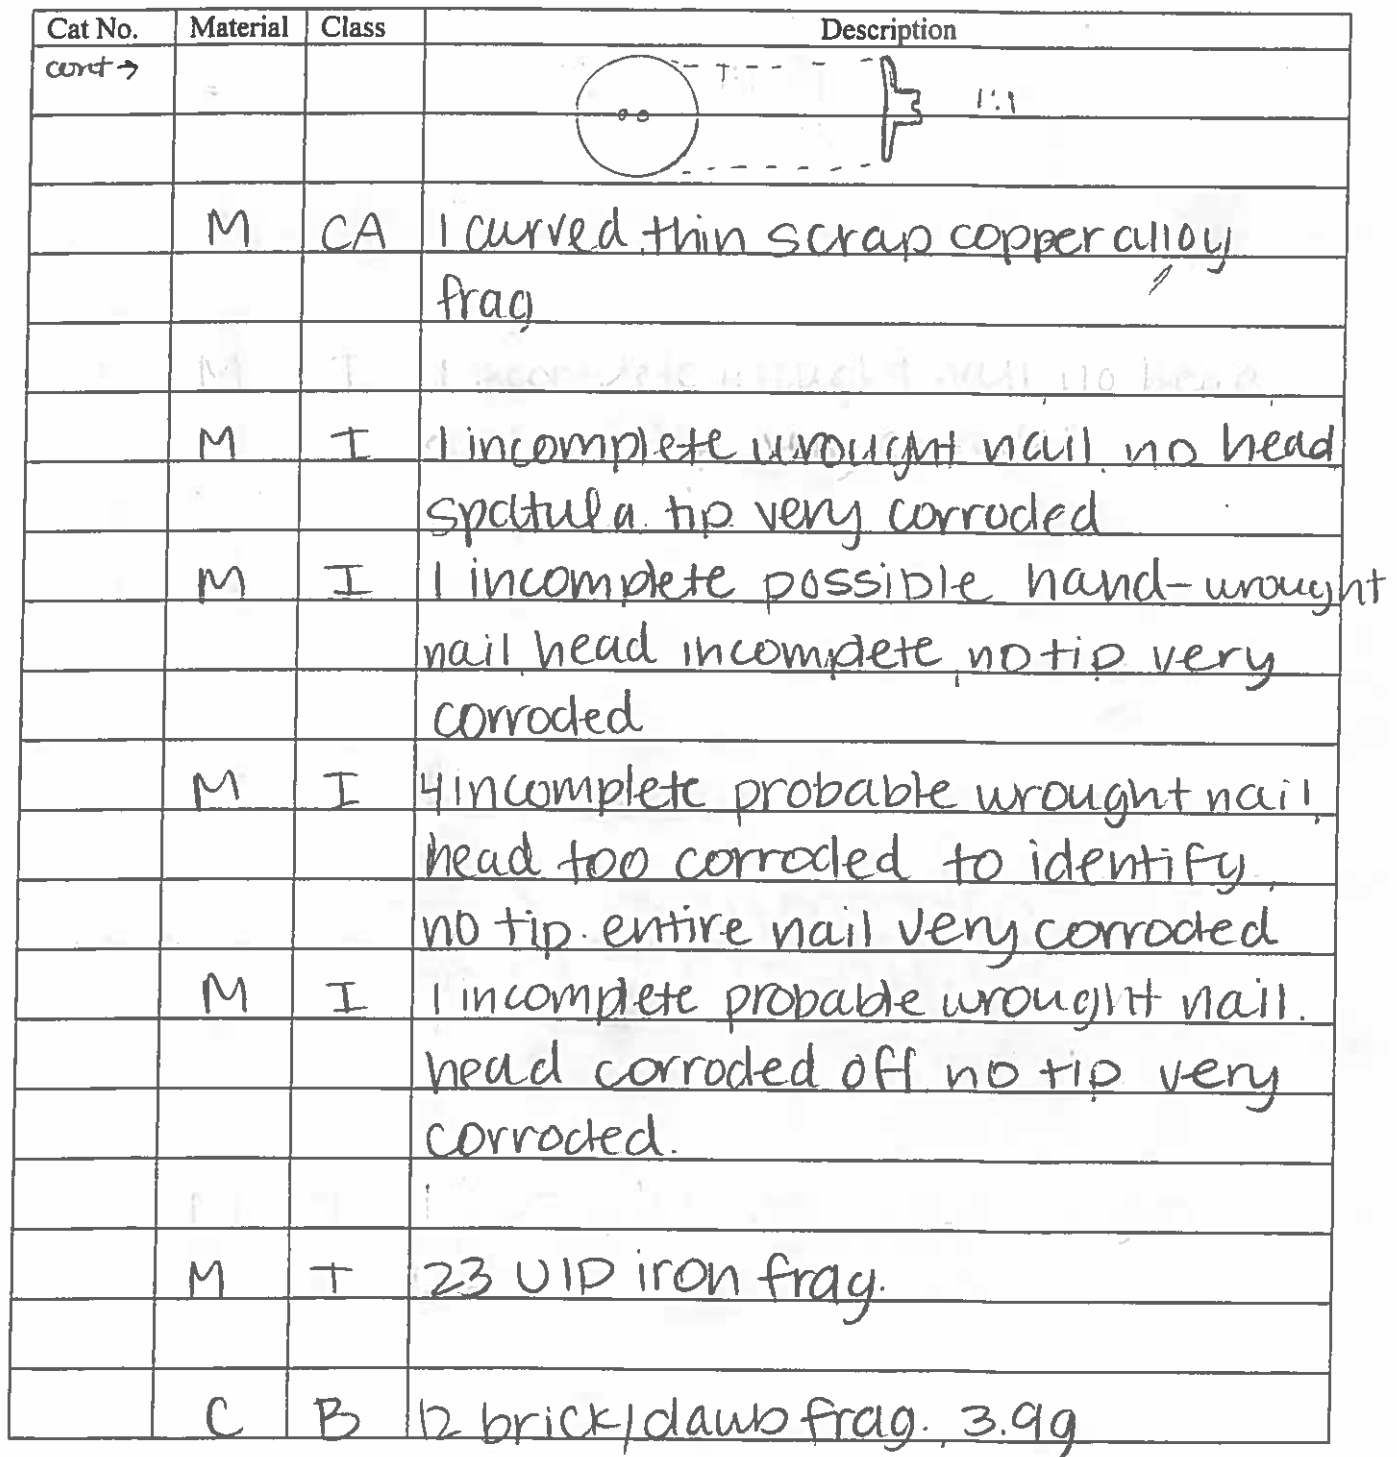 Cat No. Material Class Description
cont → 1:1
M CA 1 curved, thin scrap copper alloy
frag
M I 1 incomplete wrought nail, no head
spatula tip, very corroded
M I 1 incomplete possible hand-wrought
nail, head incomplete, no tip, very
corroded
M I 4 incomplete probable wrought nail,
head too corroded to identify,
no tip. entire nail very corroded
M I 1 incomplete probable wrought nail.
head corroded off, no tip, very
corroded.
M I 23 UID iron frag.
C B 12 brick/daub frag. 3.9g